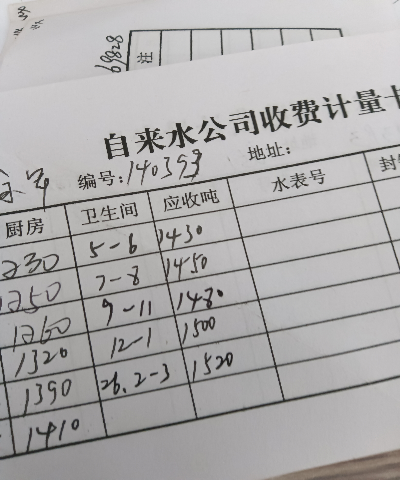 69828
注
自来水公司收费计量卡
编号:140393 地址:
厨房 卫生间 应收吨 水表号 封
1230 5-6 1430
1250 7-8 1450
1260 9-11 1480
1320 12-1 1500
1390 26.2-3 1520
1410